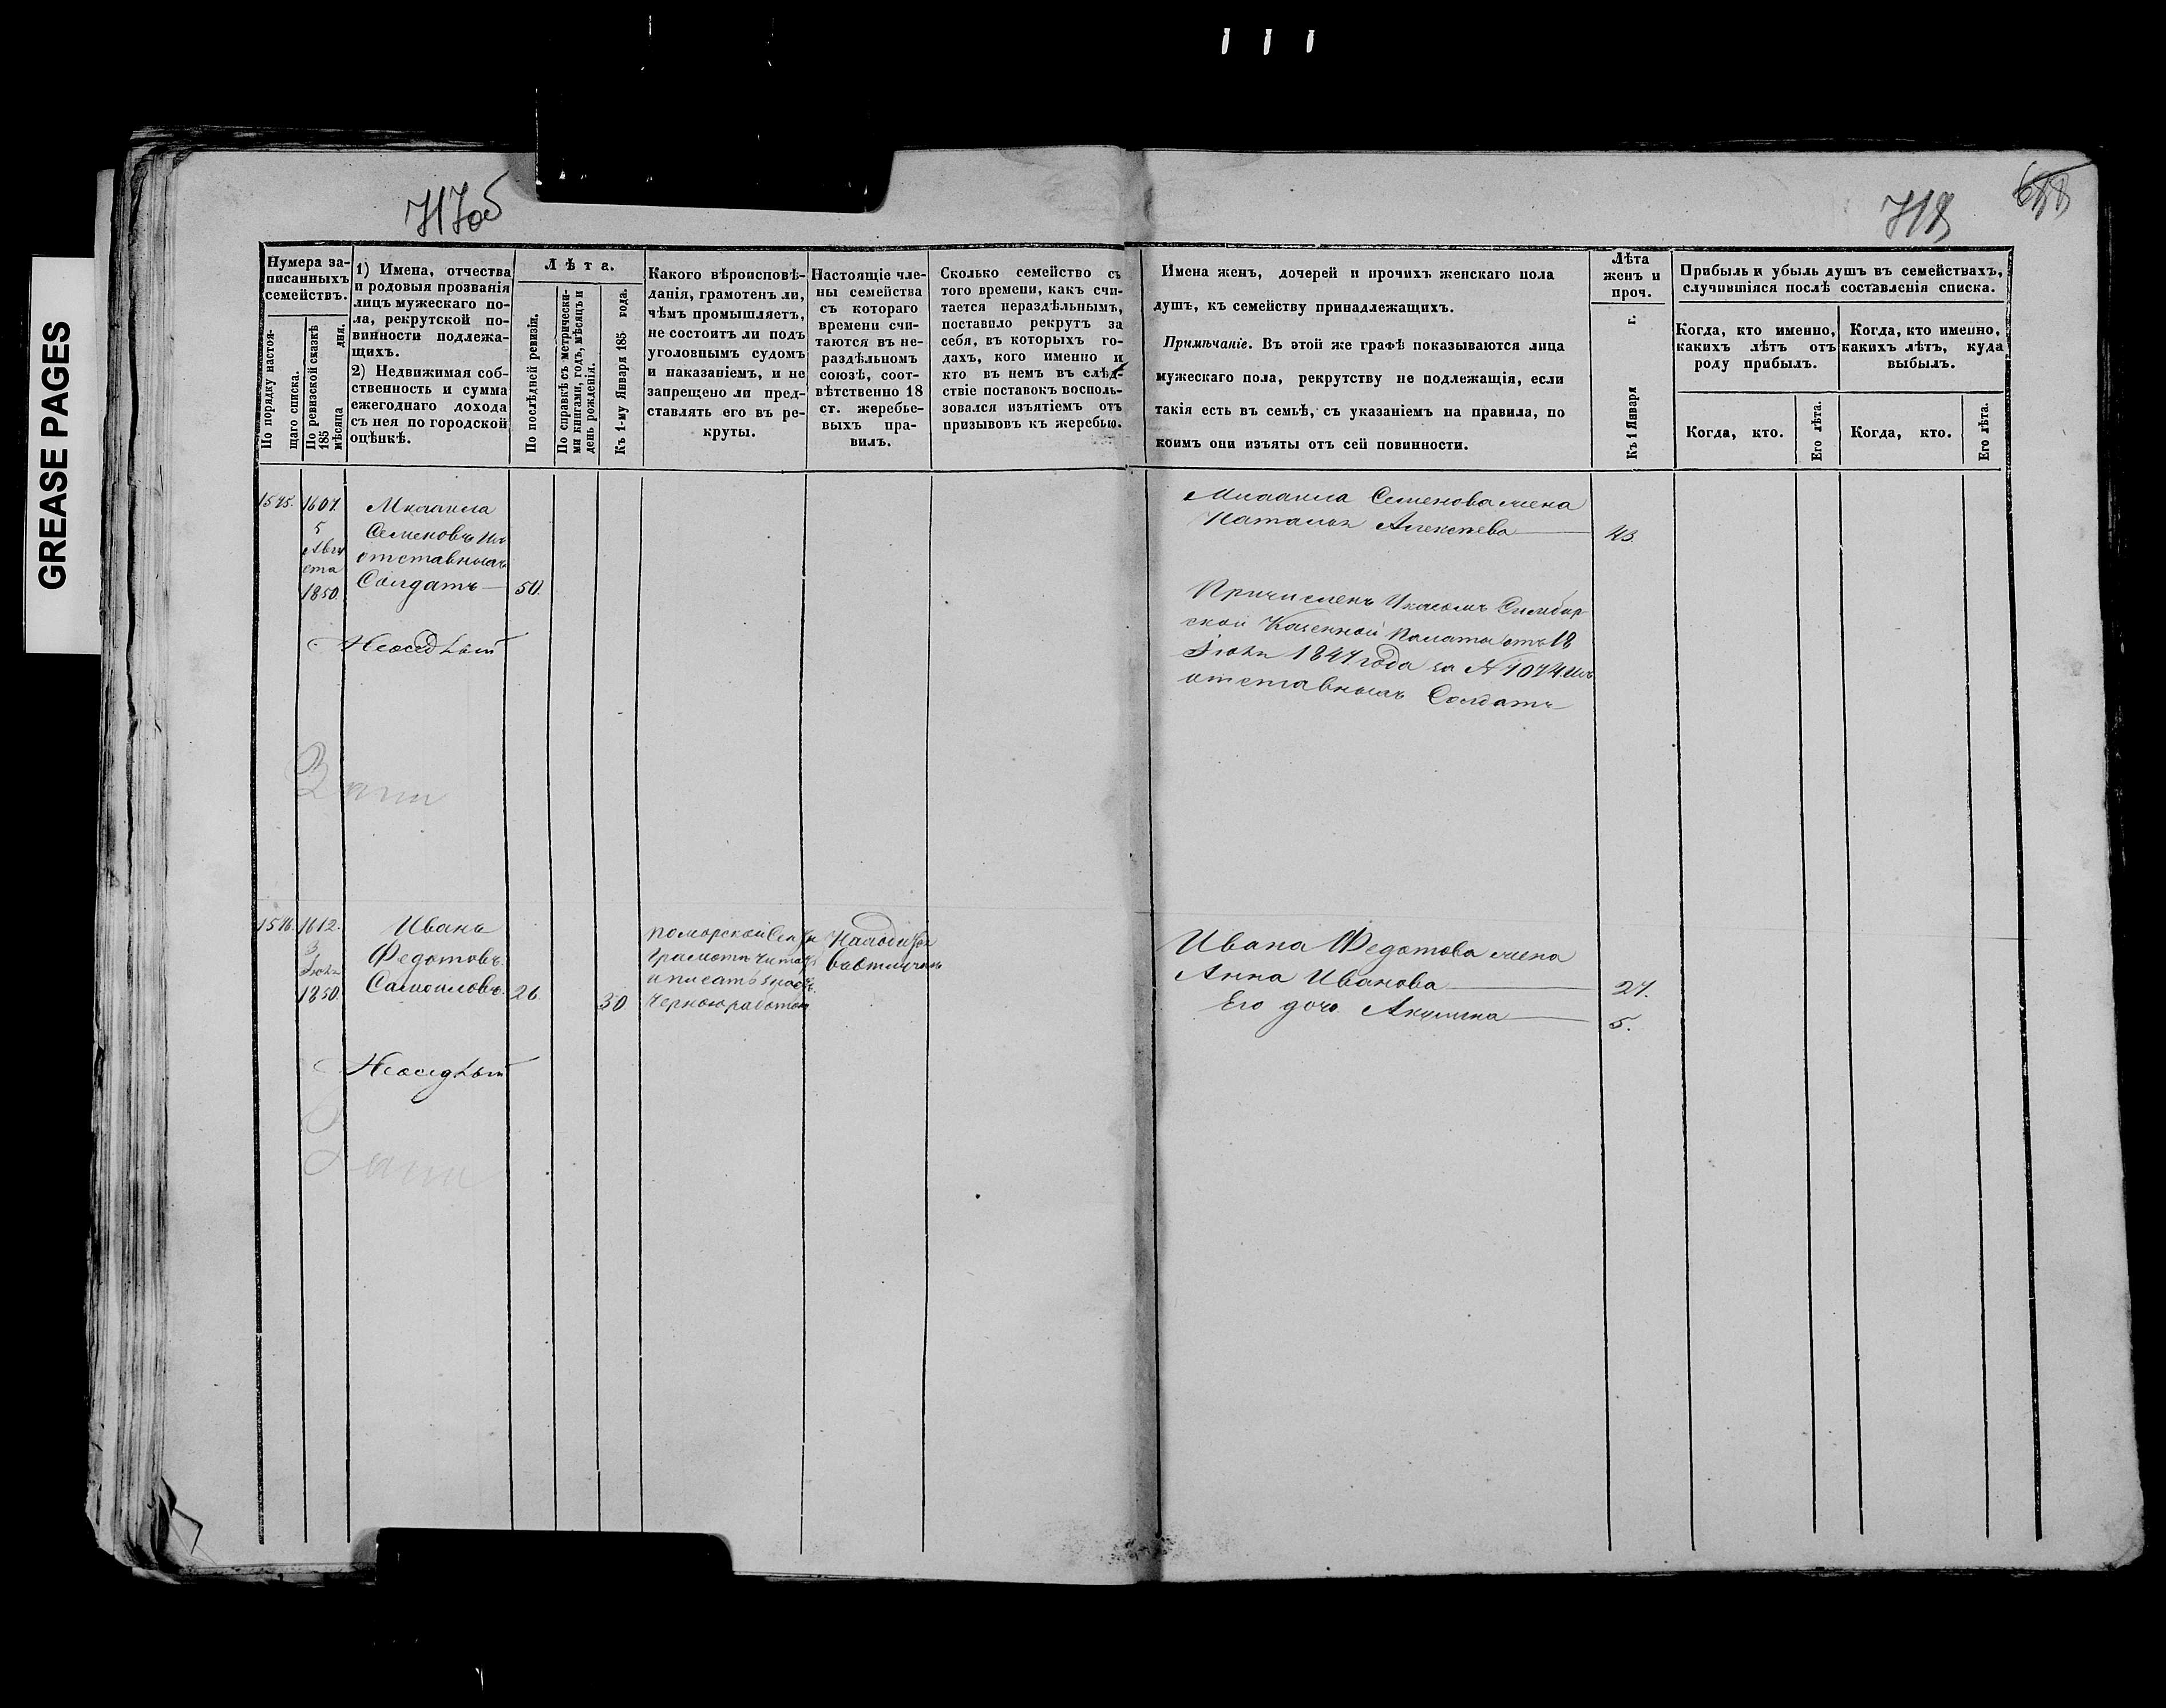 GREASE PAGES
717об
718
Нумера за-
писанныхъ
семействъ.
По порядку настоя-
щаго списка.
По ревизской сказкѣ
185 дня.
мѣсяца
1) Имена, отчества
и родовыя прозванія
лицъ мужескаго по-
ла, рекрутской по-
винности подлежа-
щихъ.
2) Недвижимая соб-
ственность и сумма
ежегоднаго дохода
съ нея по городской
оцѣнкѣ.
Лѣта.
По послѣдней ревизіи.
По справкѣ съ метрически-
ми книгами, годъ, мѣсяцъ и
день рожденія.
Къ 1-му Января 185 года.
Какого вѣроисповѣ-
данія, грамотенъ ли,
чѣмъ промышляетъ,
не состоитъ ли подъ
уголовнымъ судомъ
и наказаніемъ, и не
запрещено ли пред-
ставлять его въ ре-
круты.
Настоящіе чле-
ны семейства
съ котораго
времени счи-
таются въ не-
раздѣльномъ
союзѣ, соот-
вѣтственно 18
ст. жеребье-
выхъ пра-
вилъ.
Сколько семейство съ
того времени, какъ счи-
тается нераздѣльнымъ,
поставило рекрутъ за
себя, въ которыхъ го-
дахъ, кого именно и
кто въ немъ въ слѣд-
ствіе поставокъ восполь-
зовался изъятіемъ отъ
призывовъ къ жеребью.
Имена женъ, дочерей и прочихъ женскаго пола
душъ, къ семейству принадлежащихъ.
Примѣчаніе. Въ этой же графѣ показываются лица
мужескаго пола, рекрутству не подлежащія, если
такія есть въ семьѣ, съ указаніемъ на правила, по
коимъ они изъяты отъ сей повинности.
Лѣта
женъ и
проч.
Къ 1 Января г.
Прибыль и убыль душъ въ семействахъ,
случившіяся послѣ составленія списка.
Когда, кто именно,
какихъ лѣтъ отъ
роду прибылъ.
Когда, кто именно,
какихъ лѣтъ, куда
выбылъ.
Когда, кто.
Его лѣта.
Когда, кто.
Его лѣта.
1545.
1607.
5
Авгу
ста
1850.
Михаила
Семеновъ изъ
отставныхъ
Солдатъ
50.
Неоседлый
Михаила Семенова жена
Наталья Алексѣева
43.
Причисленъ Указомъ Симбир-
ской Казенной Палаты отъ 18
Іюня 1847 года за № 1074. изъ
отставныхъ Солдатъ
1546.
1612.
3
Іюня
1850.
Иванъ
Федотовъ
Самойловъ.
26.
30
поморской секты
Грамотѣ читать
и писать знаетъ.
Черною работою
Находится
въ отлучкѣ
Неоседлый
Ивана Федотова жена
Анна Иванова
27.
Его дочь Акулина
5.